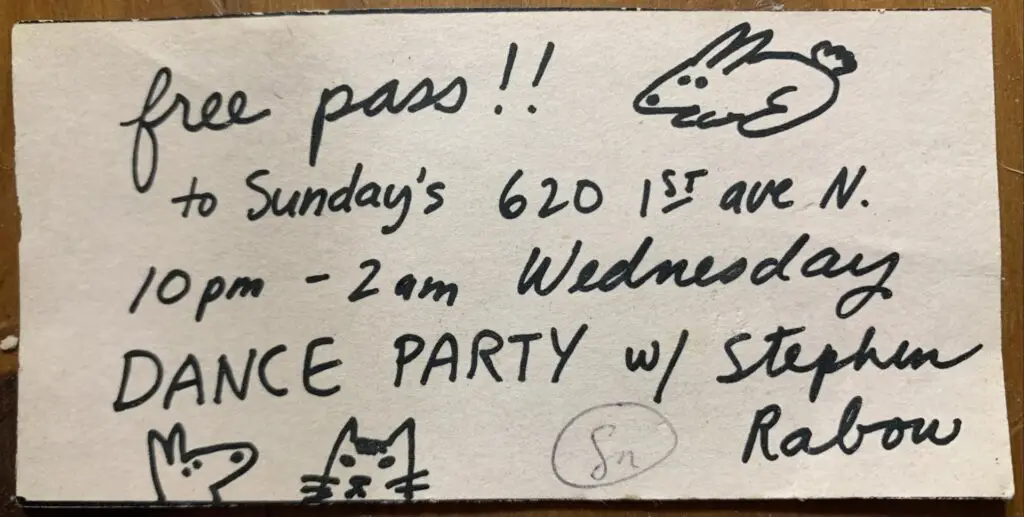 free pass!!
to Sunday's 620 1ST ave N.
10pm - 2am Wednesday
DANCE PARTY w/ Stephen
Rabow